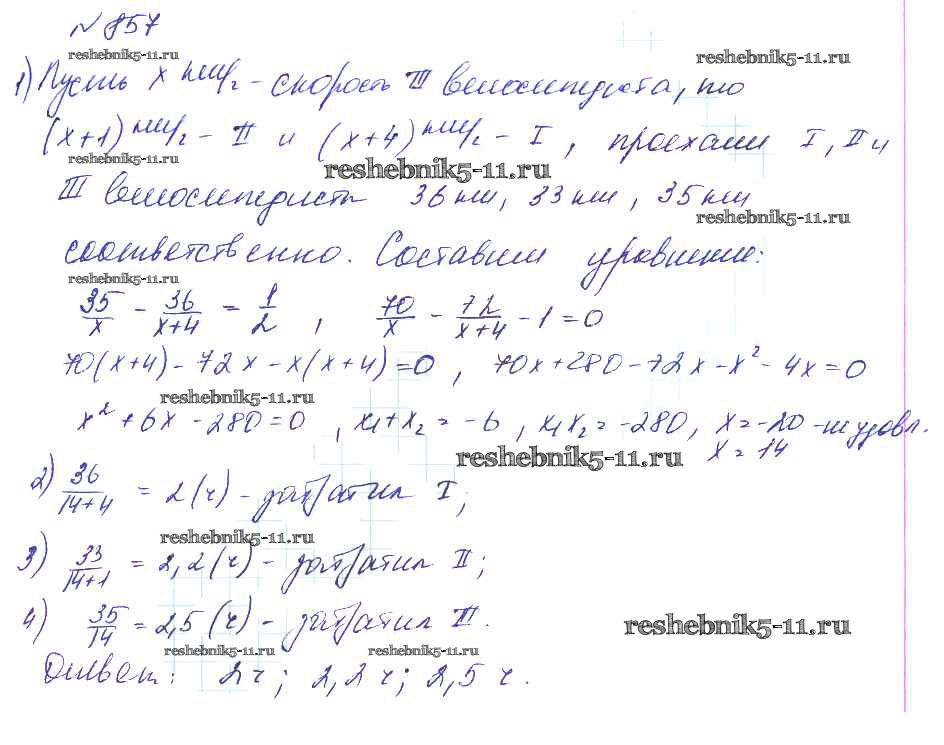 № 857
reshebnik5-11.ru
reshebnik5-11.ru
1) Пусть x км/ч - скорость III велосипедиста, то
(x+1) км/ч - II и (x+4) км/ч - I, проехали I, II и
reshebnik5-11.ru
reshebnik5-11.ru
III велосипедиста 36 км, 33 км, 35 км
reshebnik5-11.ru
соответственно. Составим уравнение:
reshebnik5-11.ru
35/x - 36/(x+4) = 1/2, 70/x - 72/(x+4) - 1 = 0
70(x+4) - 72x - x(x+4) = 0, 70x + 280 - 72x - x² - 4x = 0
reshebnik5-11.ru
x² + 6x - 280 = 0, x₁+x₂ = -6, x₁x₂ = -280, x = -20 - не удовл.
x = 14
reshebnik5-11.ru
2) 36/(14+4) = 2 (ч) - затратил I;
reshebnik5-11.ru
3) 33/(14+1) = 2,2 (ч) - затратил II;
4) 35/14 = 2,5 (ч) - затратил III.
reshebnik5-11.ru
reshebnik5-11.ru
reshebnik5-11.ru
Ответ: 2 ч; 2,2 ч; 2,5 ч.